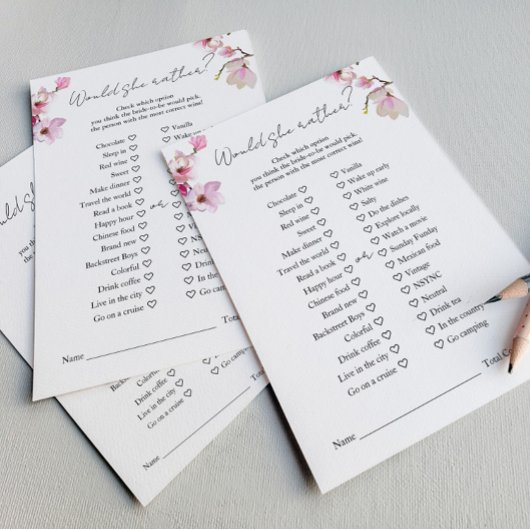 Would She rather?
Check which option
you think the bride-to-be would pick,
the person with the most correct wins!
Chocolate Vanilla
Sleep in Wake up early
Red wine White wine
Sweet Salty
Make dinner Do the dishes
Travel the world Explore locally
Read a book or Watch a movie
Happy hour Sunday Funday
Chinese food Mexican food
Brand new Vintage
Backstreet Boys NSYNC
Colorful Neutral
Drink coffee Drink tea
Live in the city In the country
Go on a cruise Go camping
Name Total
Would She rather?
Check which option
you think the bride-to-be would pick,
the person with the most correct wins!
Chocolate Vanilla
Sleep in Wake up
Red wine
Sweet
Make dinner
Travel the world
Read a book or
Happy hour
Chinese food
Brand new
Backstreet Boys
Colorful
Drink coffee
Live in the city In the
Go on a cruise Go camping
Name
you think
the
Backstreet Boys
Colorful
Drink coffee
Live in the city
Go on a cruise
Name